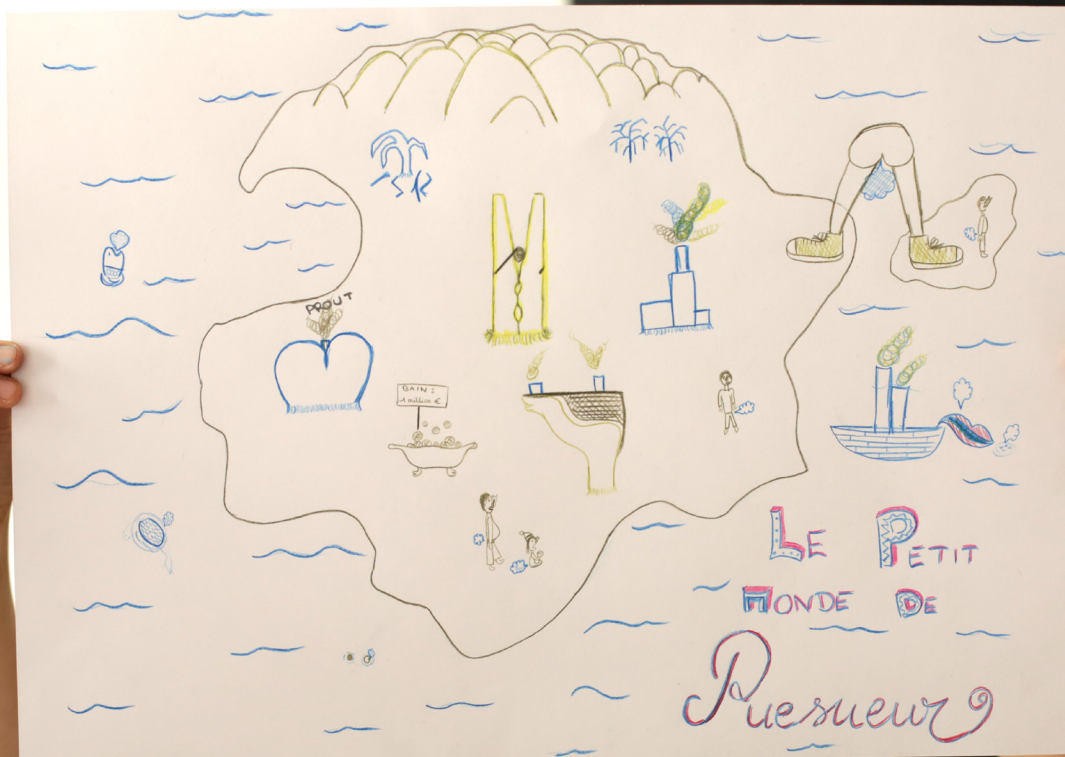 PROUT
BAIN :
1 million €
LE PETIT
MONDE DE
Puesueur